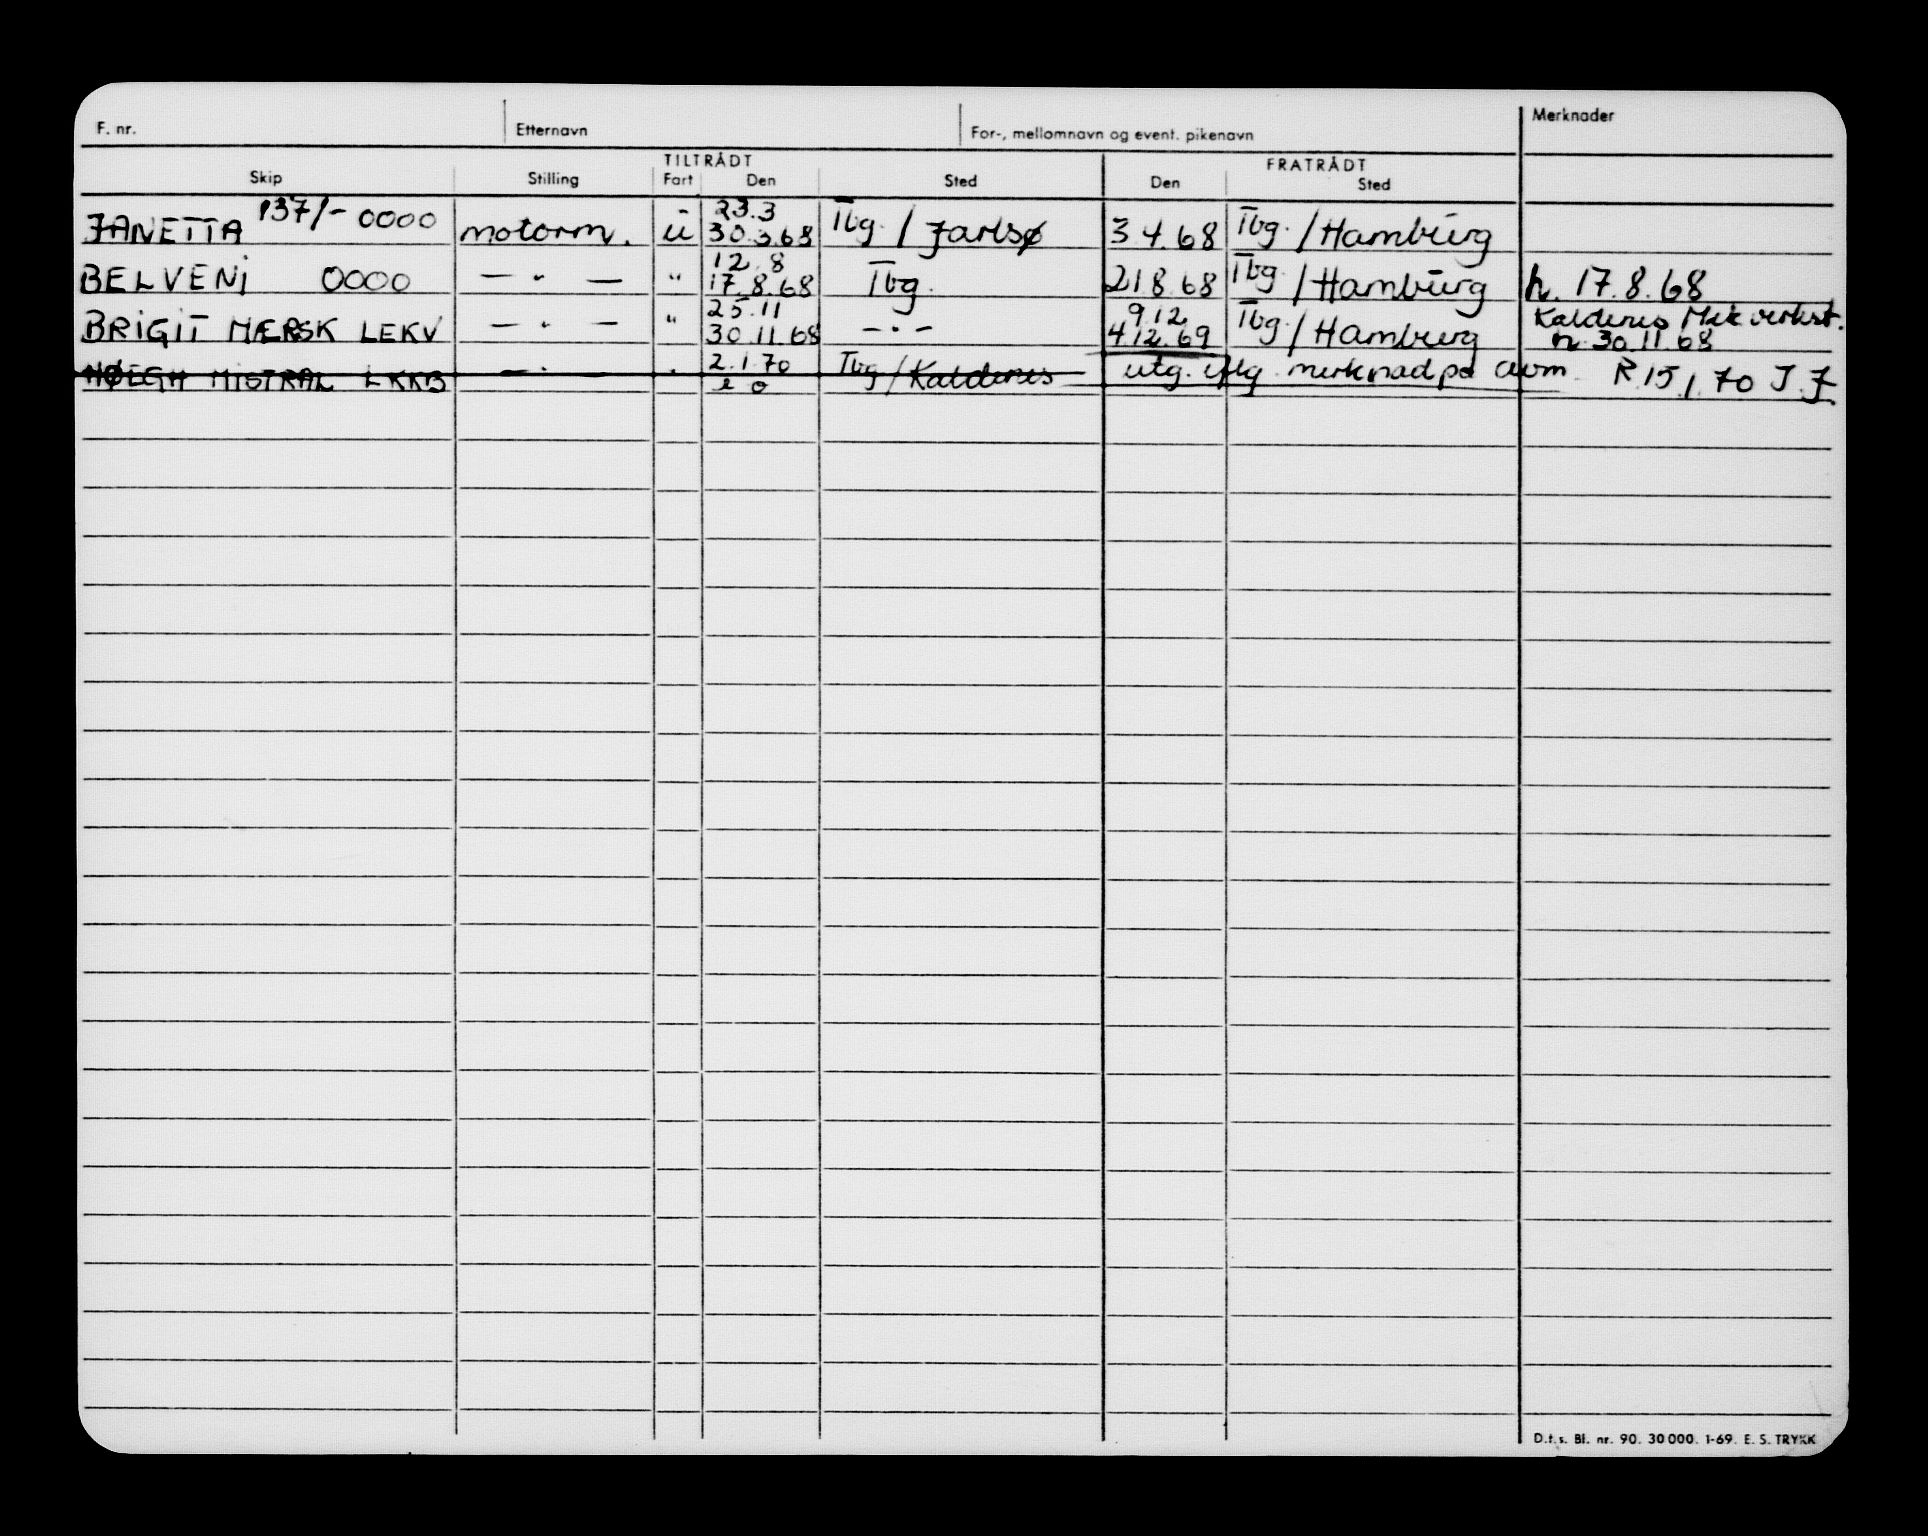 F. nr. Etternavn For-, mellomnavn og event. pikenavn Merknader
TILTRÅDT FRATRÅDT
Skip Stilling Fart Den Sted Den Sted
137/- 23.3
JANETTA 0000 motorm. u 30.3.68 Tbg. / Jarlsø 3.4.68 Tbg. / Hamburg
12.8
BELVENI 0000 — " — " 17.8.68 Tbg. 21.8.68 Tbg. / Hamburg h. 17.8.68
25.11 9.12 Kaldenes Mek verkst.
BRIGIT MÆRSK LEKV — " — " 30.11.68 — " — 4.12.69 Tbg. / Hamburg h. 30.11.68
HØEGH MISTRAL LKKB — " — " 2.1.70 Tbg / Kaldenes utg. iflg. merknad på avm. R 15.1.70 J.J.
D.f.s. Bl. nr. 90. 30 000. 1-69. E. S. TRYKK